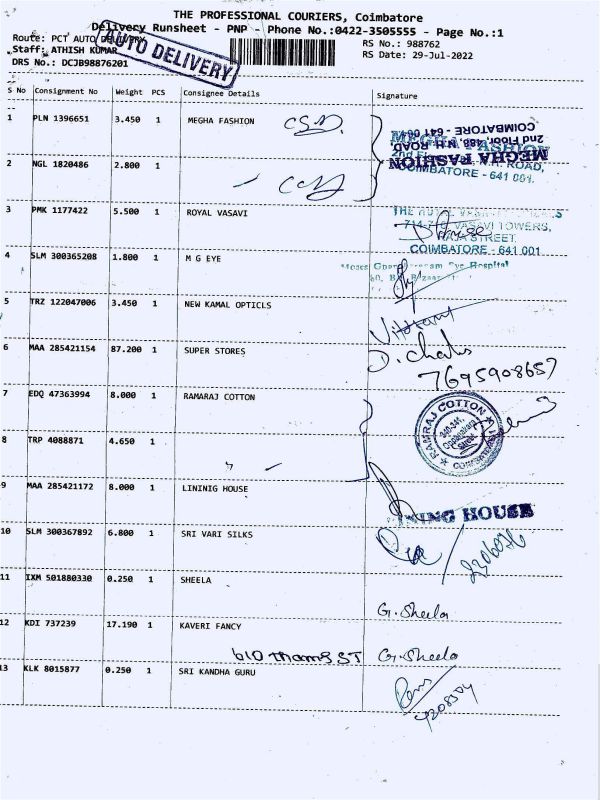 THE PROFESSIONAL COURIERS, Coimbatore
Delivery Runsheet - PNP - Phone No.:0422-3505555 - Page No.:1
Route: PCT AUTO DELIVERY
RS No.: 988762
Staff: ATHISH KUMAR
RS Date: 29-Jul-2022
DRS No.: DCJB98876201
AUTO DELIVERY
S No Consignment No Weight PCS Consignee Details Signature
1 PLN 1396651 3.450 1 MEGHA FASHION
MEGHA FASHION
2nd Floor, 488, N.H. ROAD,
COIMBATORE - 641 001
2 NGL 1820486 2.800 1
COIMBATORE - 641 001.
3 PMK 1177422 5.500 1 ROYAL VASAVI
VASAVI TOWERS,
RAJA STREET,
COIMBATORE - 641 001
4 SLM 300365208 1.800 1 M G EYE
Eye Hospital
5 TRZ 122047006 3.450 1 NEW KAMAL OPTICLS
6 MAA 285421154 87.200 1 SUPER STORES
7695908657
7 EDQ 47363994 8.000 1 RAMARAJ COTTON
RAMRAJ COTTON
8 TRP 4088871 4.650 1
9 MAA 285421172 8.000 1 LININIG HOUSE
LINING HOUSE
10 SLM 300367892 6.800 1 SRI VARI SILKS
11 IXM 501880330 0.250 1 SHEELA
G. Sheela
12 KDI 737239 17.190 1 KAVERI FANCY
G. Sheela
13 KLK 8015877 0.250 1 SRI KANDHA GURU